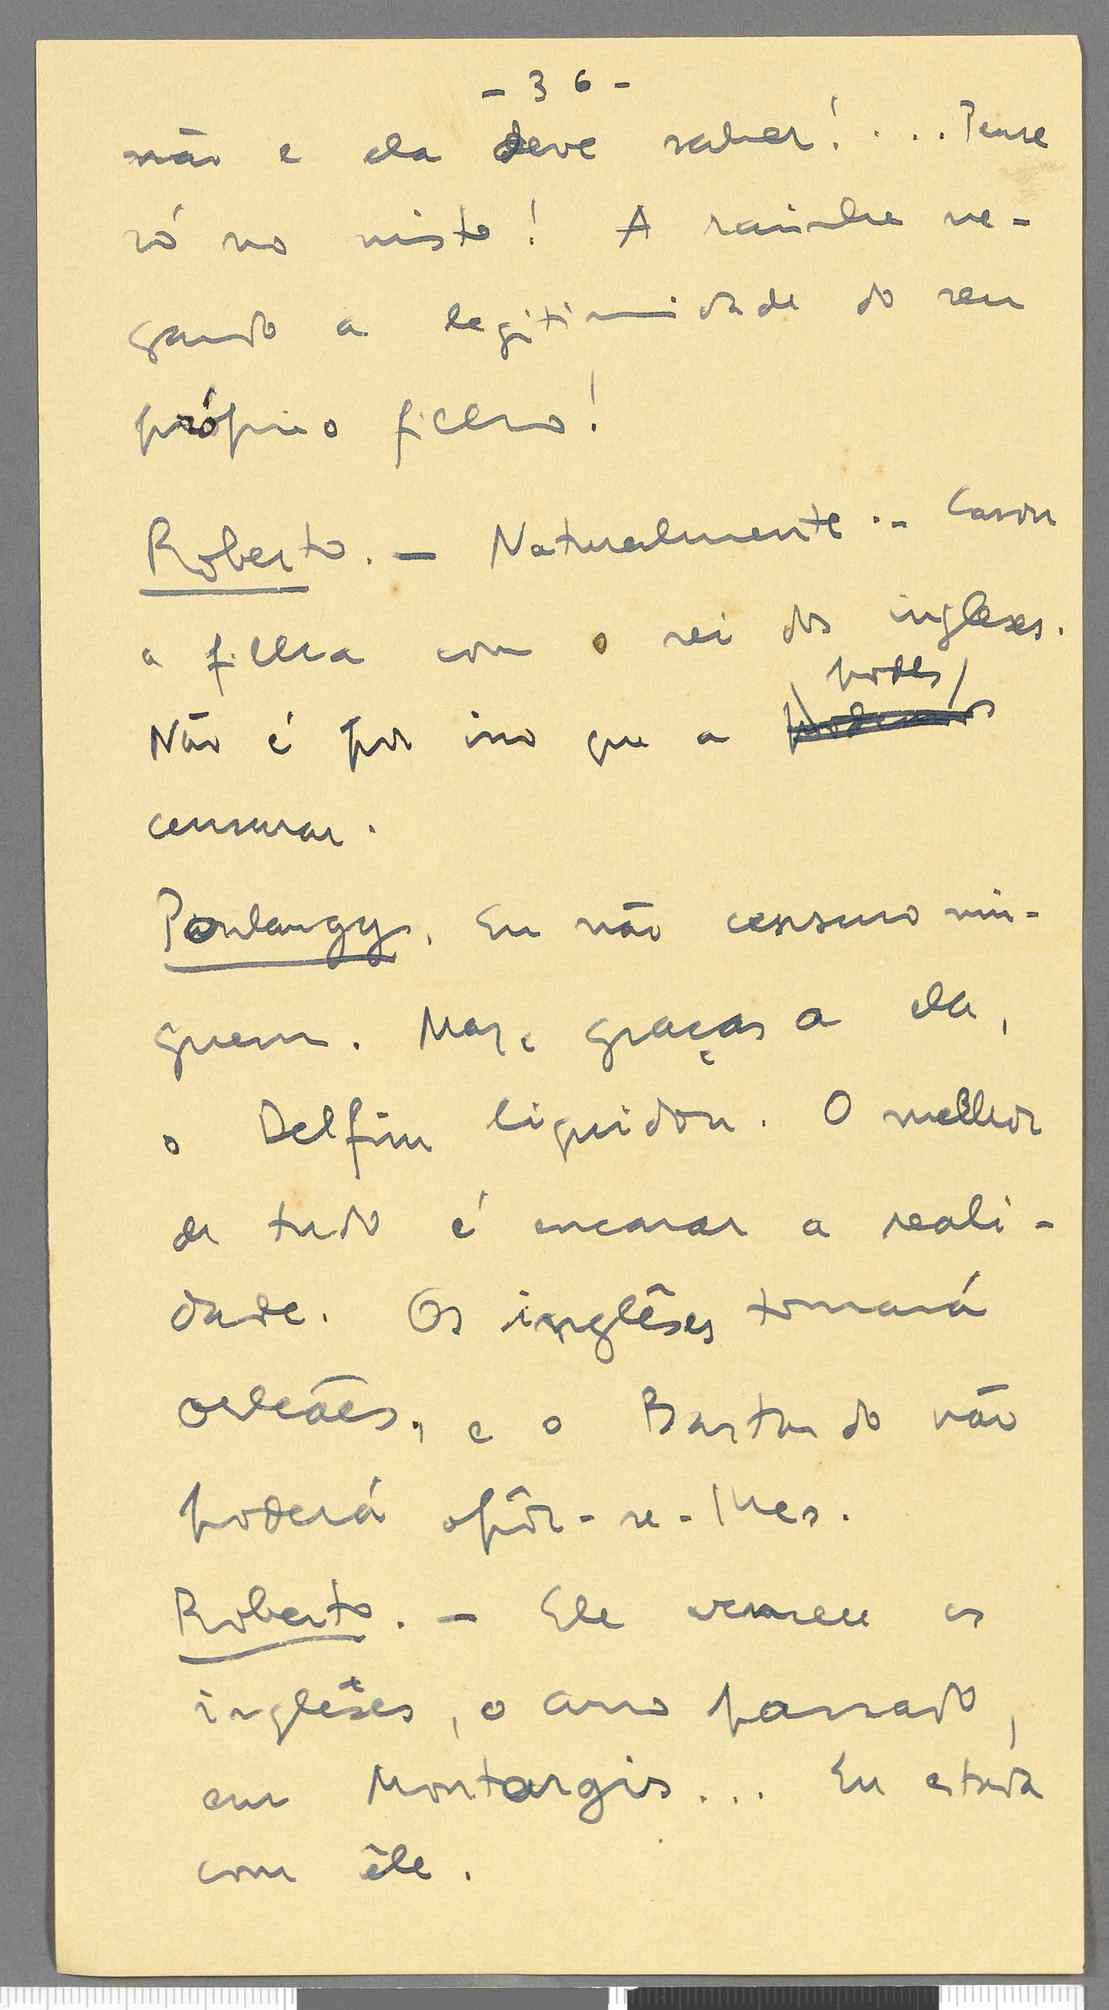 - 36 -
não e ela deve saber! ... Pense
só no nisto! A rainha ne-
gando a legitimidade do seu
próprio filho!
Roberto. — Naturalmente .. Casou
a filha com o rei dos ingleses.
podes
Não é por isso que a podemos
censurar.
Poulangy. Eu não censuro nin-
guem. Mas, graças a ela,
o Delfim liquidou. O melhor
de tudo é encarar a reali-
dade. Os inglêses tomará
orleães, e o Bastardo não
poderá opôr-se-lhes.
Roberto. — Ele venceu os
inglêses, o ano passado,
em Montargis... Eu estava
com êle.